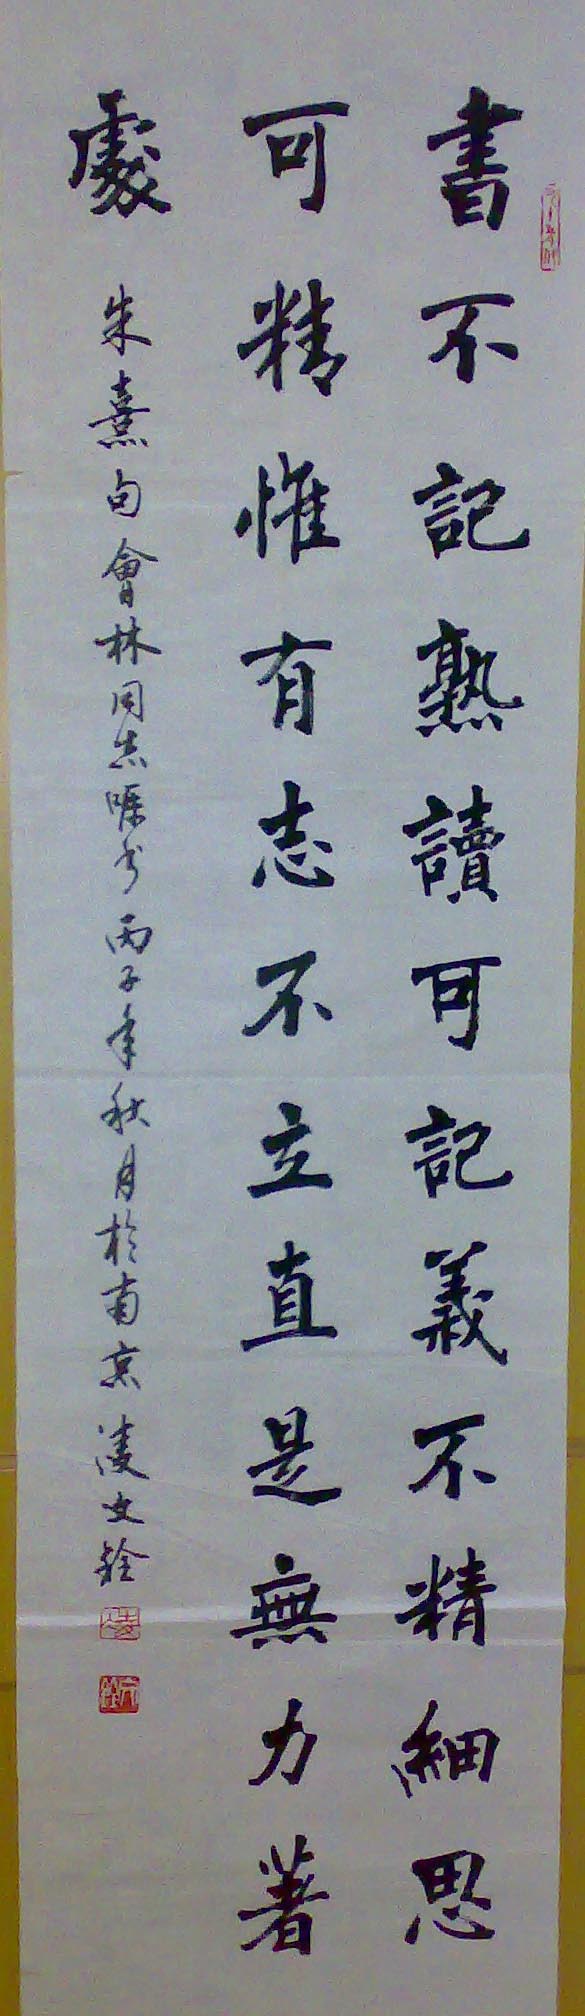 書不記熟讀可記義不精細思
可精惟有志不立直是無力著
處
朱熹句會林同志囑书丙子年秋月於南京凌文銓